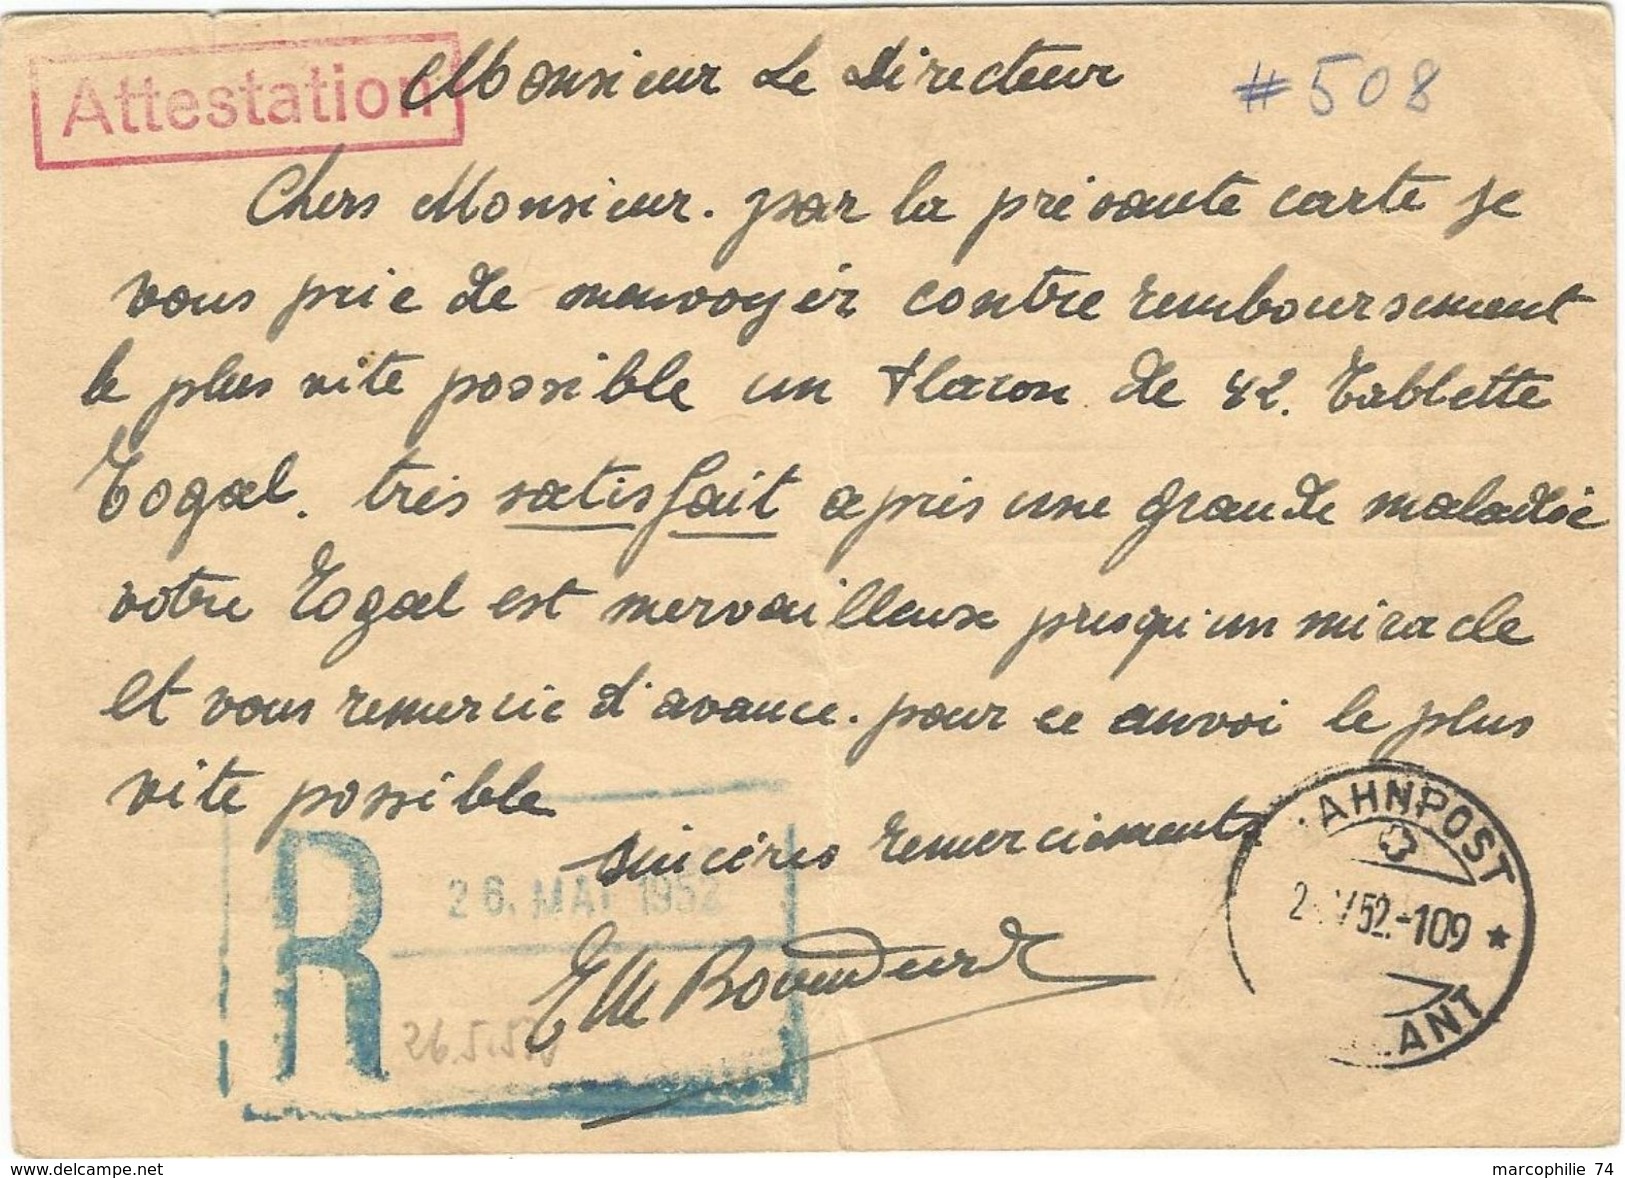 Attestation
Monsieur Le Directeur
#508
Chers Monsieur. par la présante carte je
vous prie de menvoyér contre remboursement
le plus vite possible un flacon de 42. Tablette
Togal. très satisfait après une grande maladie
votre Togal est mervailleux presqu'un miracle
et vous remercie d'avance. pour ce anvoi le plus
vite possible
sincères remerciements
R
26. MAI 1952
26.5.52
AHNPOST
52.-109 ★
ANT
www.delcampe.net
marcophilie 74